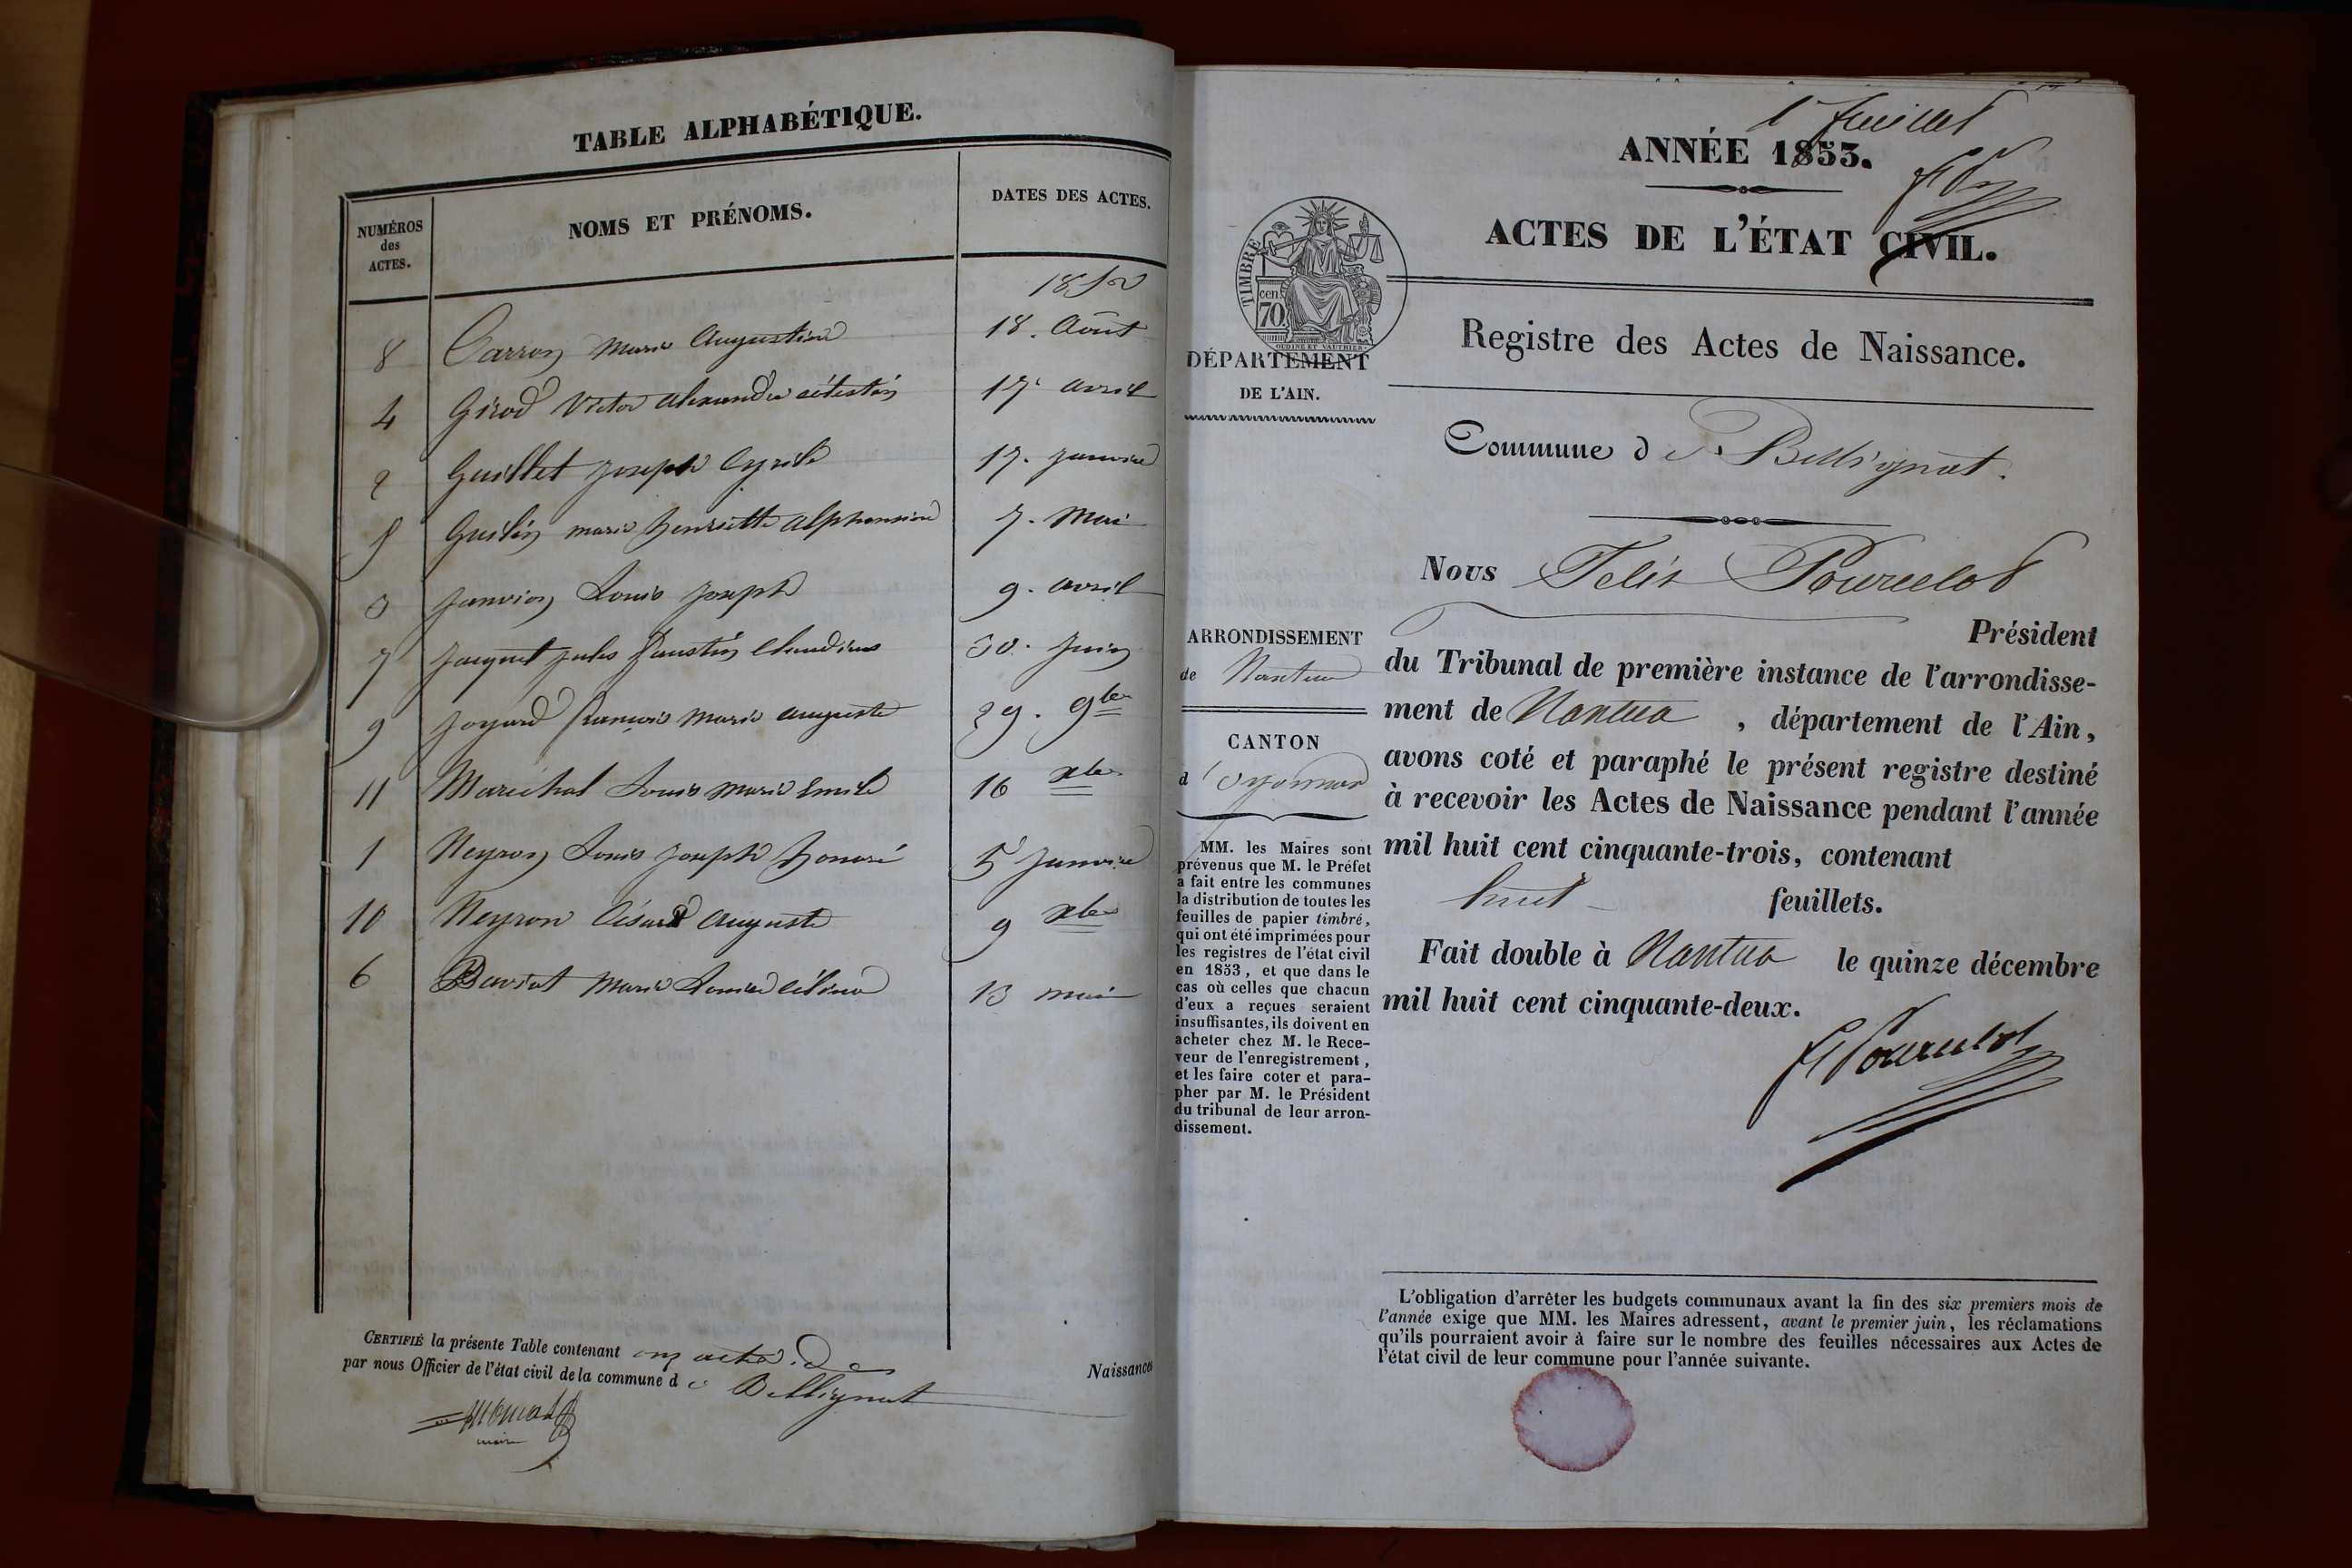 TABLE ALPHABÉTIQUE.
NUMÉROS
des
ACTES.
NOMS ET PRÉNOMS.
DATES DES ACTES.
1852
8 Carron Marie Augustine 18. Août
4 Girod Victor Alexandre célestin 17. avril
2 Guillet Joseph Cyrile 17. Janvier
5 Guilin marie henriette alphonsine 7. Mai
3 Janvion Louis Joseph 9. avril
7 Jacquet Jules faustin Claudius 30. Juin
9 Joyard françois Marie auguste 29. 9bre
11 Maréchal Louis Marie Emile 16 xbre
1 Neyron Louis Joseph honoré 5 Janvier
10 Neyron César Auguste 9 xbre
6 Marie Louise célina 13 mai
CERTIFIÉ la présente Table contenant onze actes de Naissances
par nous Officier de l'état civil de la commune de Bellignat
maire
1r feuillet
ANNÉE 1853.
ACTES DE L'ÉTAT CIVIL.
TIMBRE
70 cen.
OUDINE ET VAUTHIER
Registre des Actes de Naissance.
DÉPARTEMENT
DE L'AIN.
Commune de Bellignat.
Nous Félix Pourcelot
Président
du Tribunal de première instance de l'arrondisse-
ment de Nantua, département de l'Ain,
avons coté et paraphé le présent registre destiné
à recevoir les Actes de Naissance pendant l'année
mil huit cent cinquante-trois, contenant
huit feuillets.
Fait double à Nantua le quinze décembre
mil huit cent cinquante-deux.
F Pourcelot
ARRONDISSEMENT
de Nantua
CANTON
d'Oyonnax
MM. les Maires sont
prévenus que M. le Préfet
a fait entre les communes
la distribution de toutes les
feuilles de papier timbré,
qui ont été imprimées pour
les registres de l'état civil
en 1853, et que dans le
cas où celles que chacun
d'eux a reçues seraient
insuffisantes, ils doivent en
acheter chez M. le Rece-
veur de l'enregistrement,
et les faire coter et para-
pher par M. le Président
du tribunal de leur arron-
dissement.
L'obligation d'arrêter les budgets communaux avant la fin des six premiers mois de
l'année exige que MM. les Maires adressent, avant le premier juin, les réclamations
qu'ils pourraient avoir à faire sur le nombre des feuilles nécessaires aux Actes de
l'état civil de leur commune pour l'année suivante.